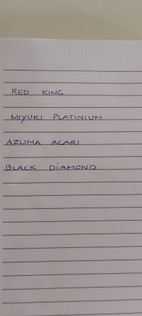 RED KING
MIYUKI PLATINIUM
AZUMA AOARI
BLACK DIAMOND